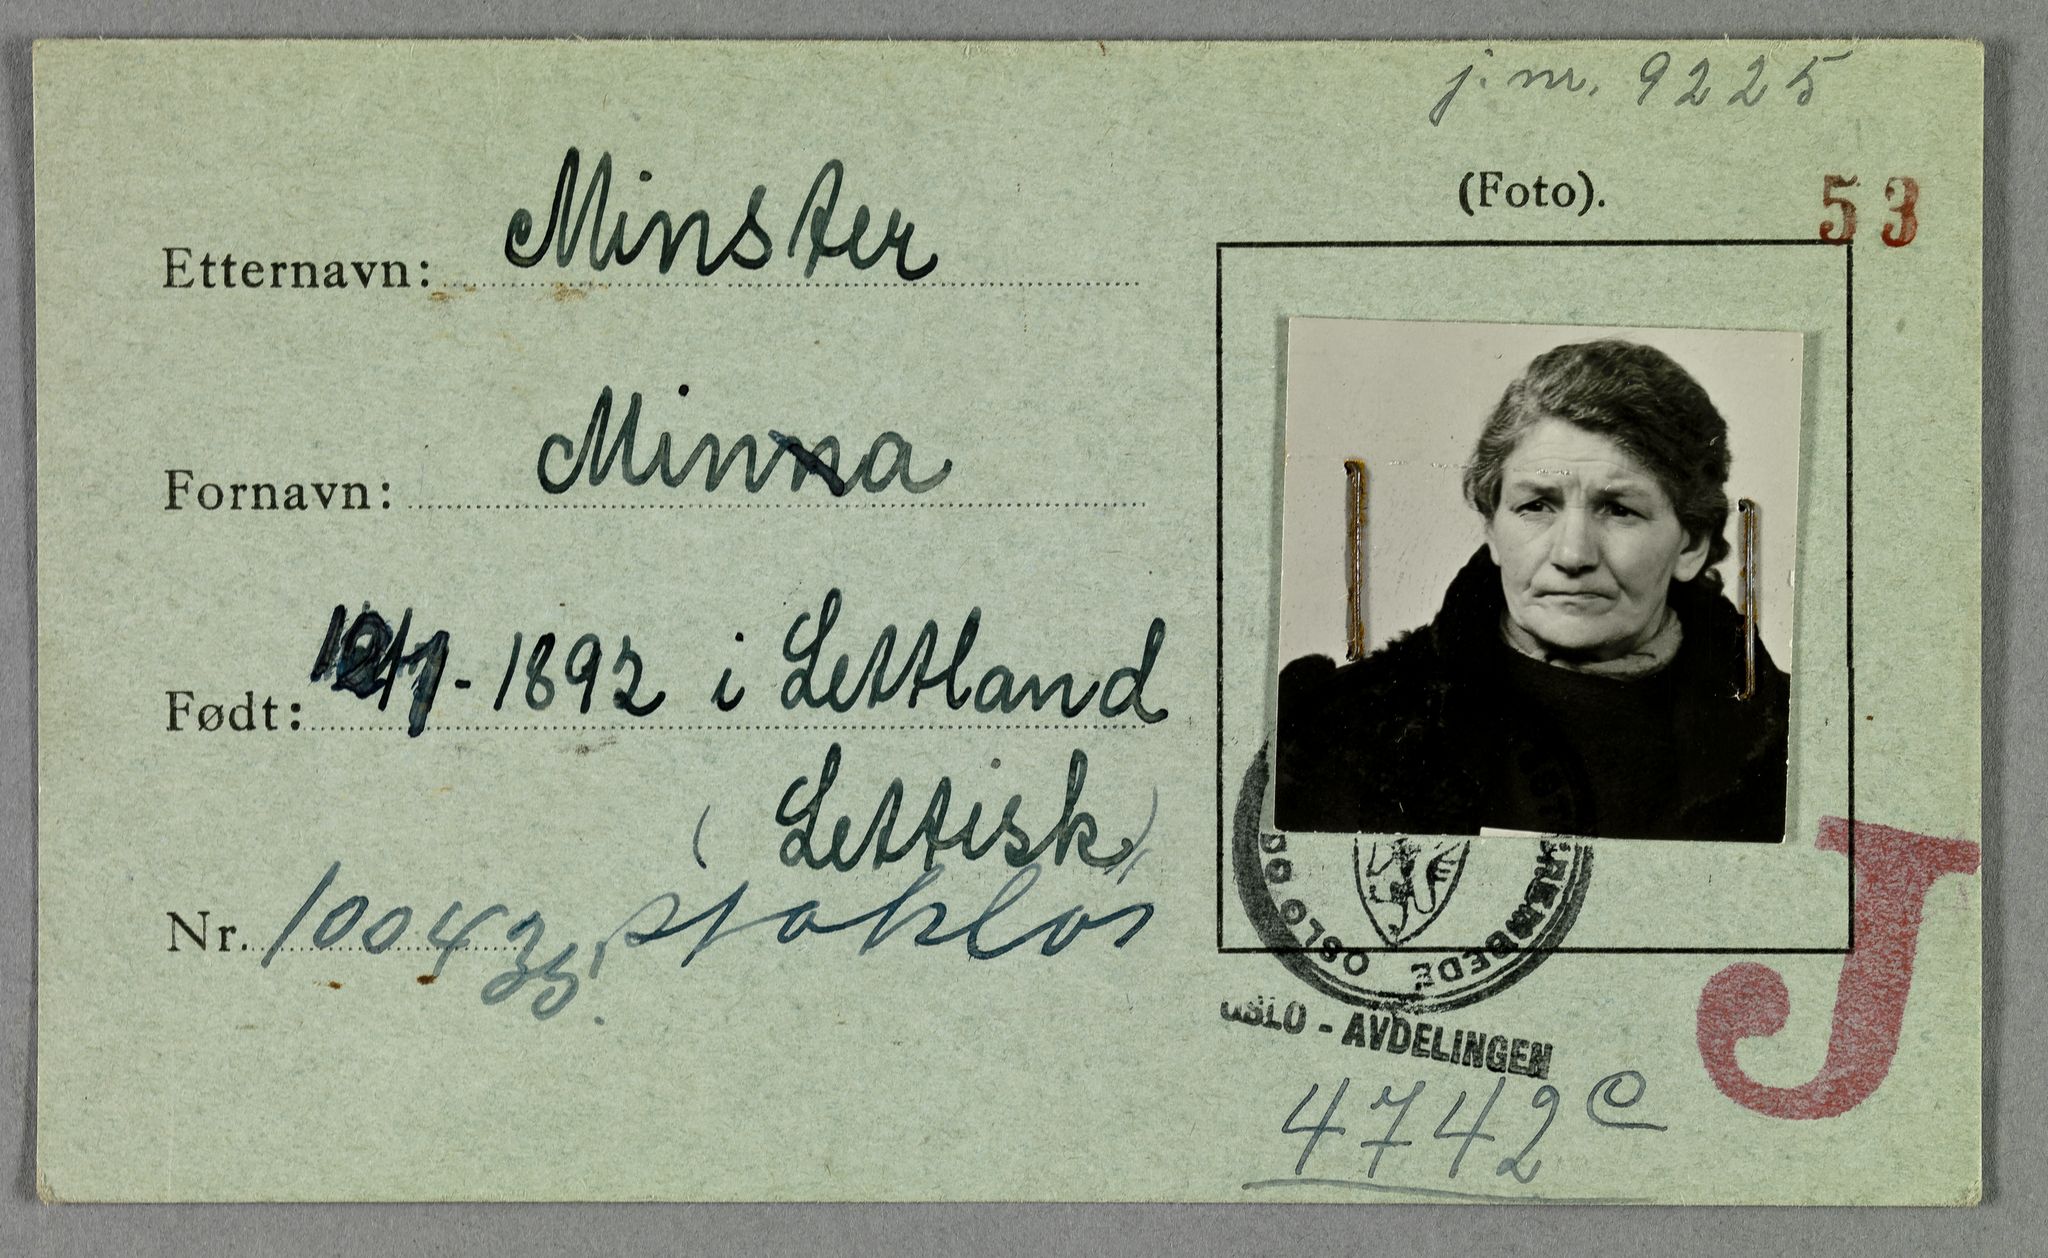 j. nr. 9225
(Foto).
53
Etternavn: Minster
Fornavn: Minna
Født: -1892 i Lettland
(Lettisk)
Nr. 100435. statsløs
OSLO POLITIKAMMER
OSLO - AVDELINGEN
4742 C
J